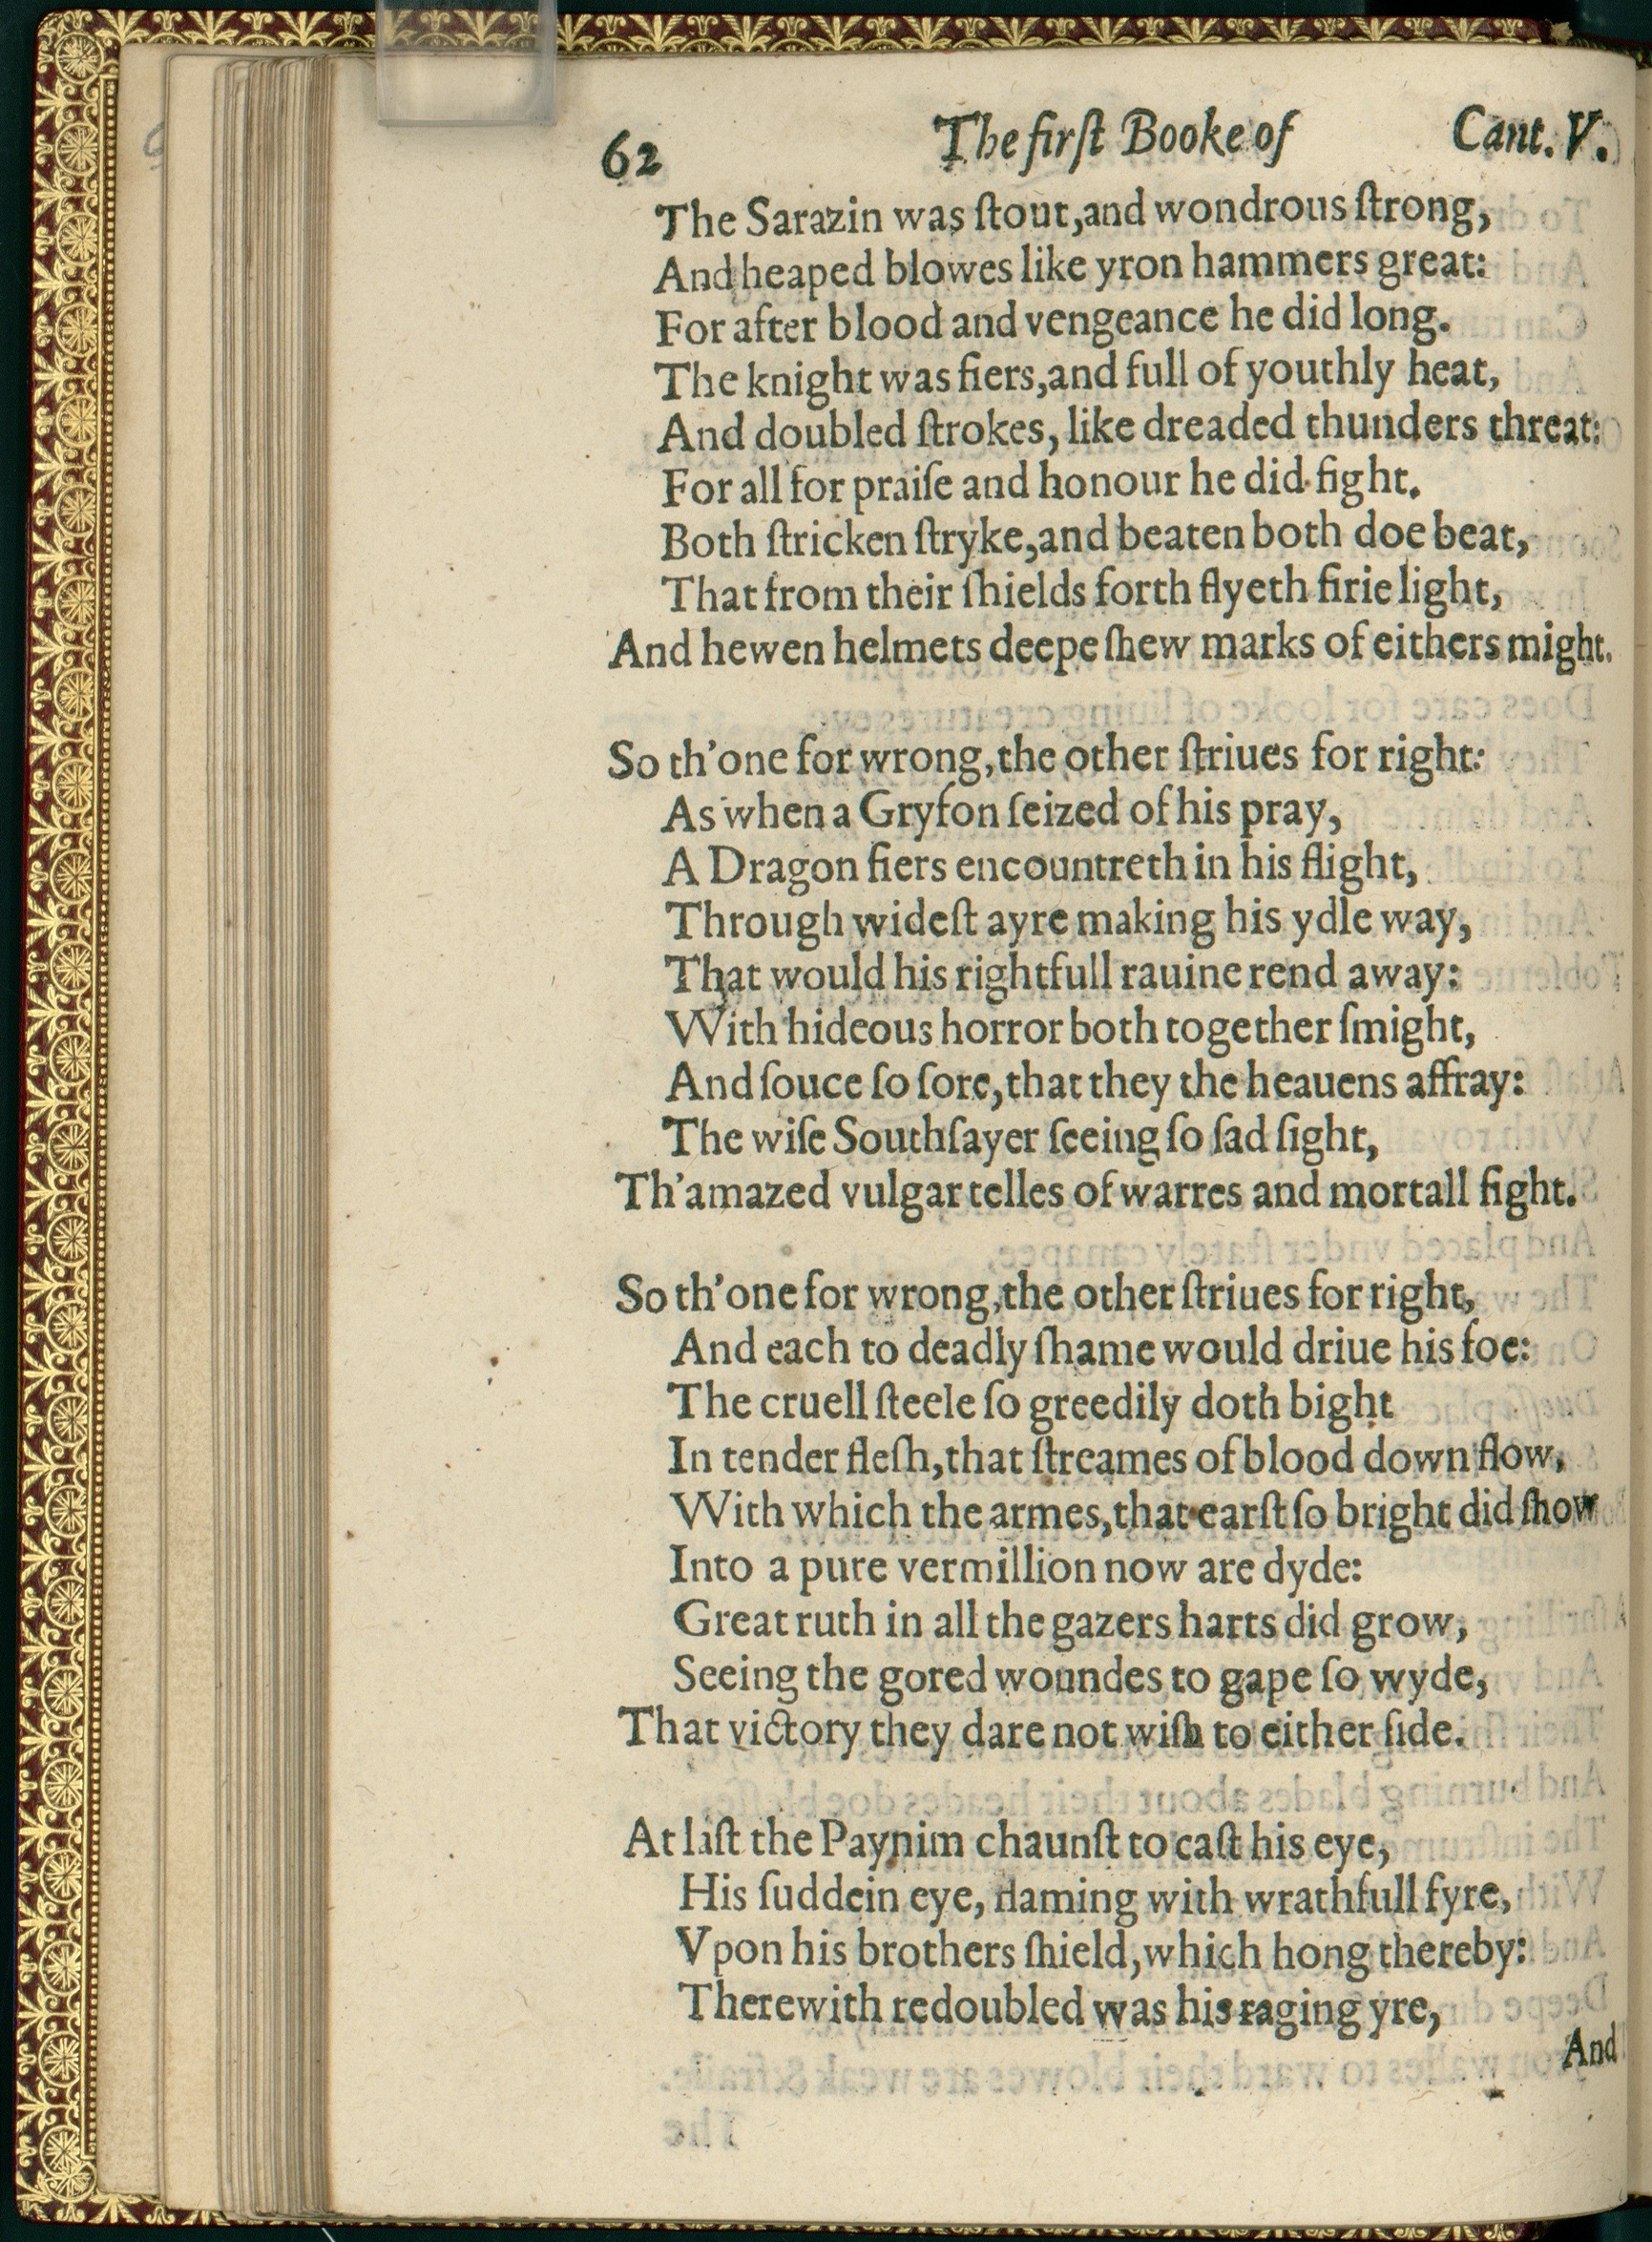 62 The firſt Booke of Cant. V.
The Sarazin was ſtout,and wondrous ſtrong,
And heaped blowes like yron hammers great:
For after blood and vengeance he did long.
The knight was fiers,and full of youthly heat,
And doubled ſtrokes, like dreaded thunders threat:
For all for praiſe and honour he did fight.
Both ſtricken ſtryke,and beaten both doe beat,
That from their ſhields forth flyeth firie light,
And hewen helmets deepe ſhew marks of eithers might.
So th'one for wrong,the other ſtriues for right:
As when a Gryfon ſeized of his pray,
A Dragon fiers encountreth in his flight,
Through wideſt ayre making his ydle way,
That would his rightfull rauine rend away:
With hideous horror both together ſmight,
And ſouce ſo ſore,that they the heauens affray:
The wiſe Southſayer ſeeing ſo ſad ſight,
Th'amazed vulgar telles of warres and mortall fight.
So th'one for wrong,the other ſtriues for right,
And each to deadly ſhame would driue his foe:
The cruell ſteele ſo greedily doth bight
In tender fleſh,that ſtreames of blood down flow,
With which the armes,that earſt ſo bright did ſhow
Into a pure vermillion now are dyde:
Great ruth in all the gazers harts did grow,
Seeing the gored woundes to gape ſo wyde,
That victory they dare not wiſh to either ſide.
At laſt the Paynim chaunſt to caſt his eye,
His ſuddein eye, flaming with wrathfull fyre,
Vpon his brothers ſhield,which hong thereby:
Therewith redoubled was his raging yre,
And